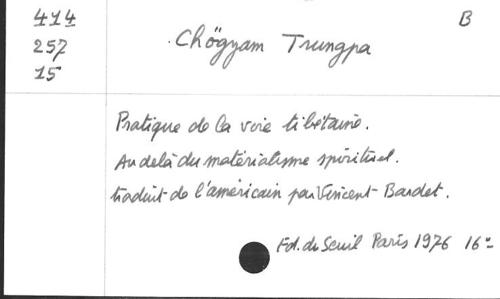 414
257
15
B
Chögyam Trungpa
Pratique de la voie tibétaine.
Au delà du matérialisme spirituel.
traduit de l'américain par Vincent Bardet.
Ed. du Seuil Paris 1976 16°